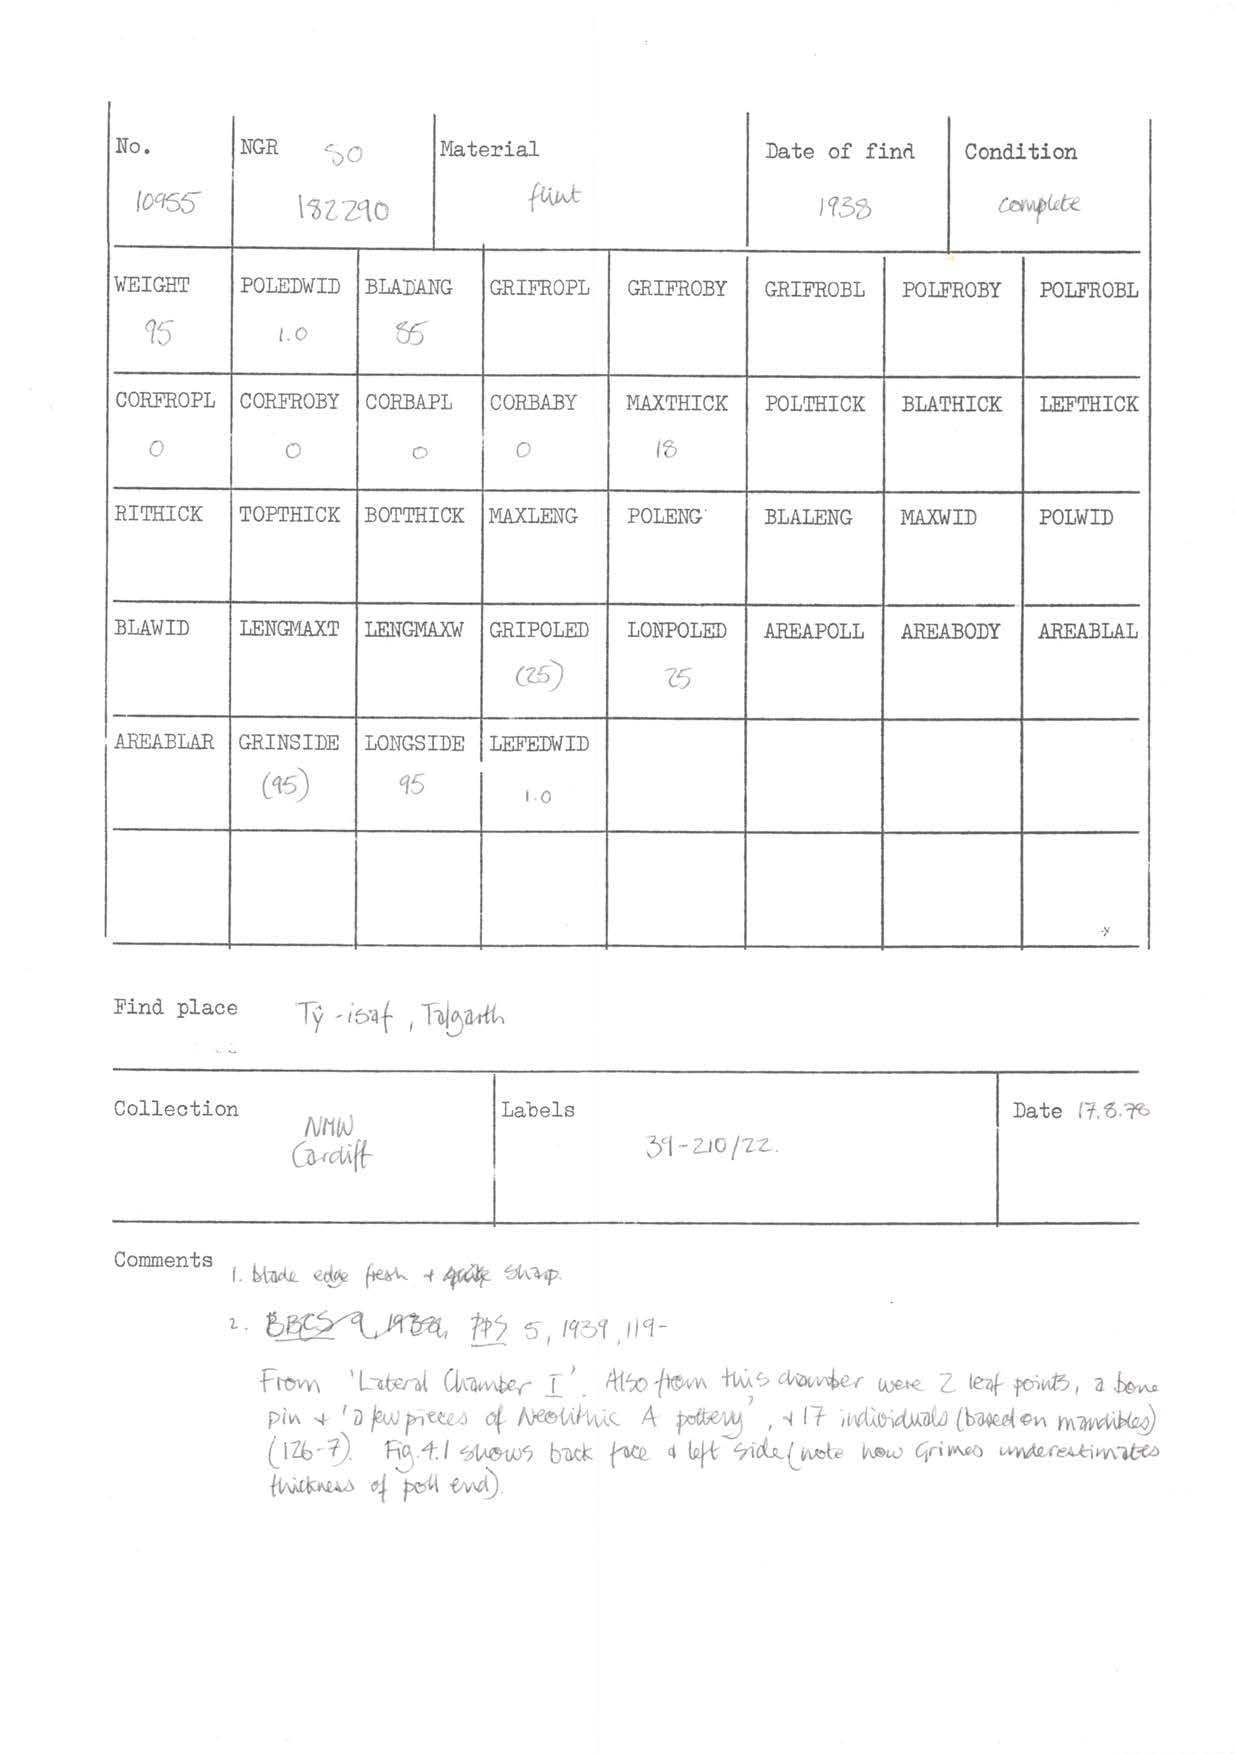 No. NGR SO Material Date of find Condition
10955 182290 flint 1938 complete
WEIGHT POLEDWID BLADANG GRIFROPL GRIFROBY GRIFROBL POLFROBY POLFROBL
95 1.0 85
CORFROPL CORFROBY CORBAPL CORBABY MAXTHICK POLTHICK BLATHICK LEFTHICK
0 0 0 0 18
RITHICK TOPTHICK BOTTHICK MAXLENG POLENG BLALENG MAXWID POLWID
BLAWID LENGMAXT LENGMAXW GRIPOLED LONPOLED AREAPOLL AREABODY AREABLAL
(25) 25
AREABLAR GRINSIDE LONGSIDE LEFEDWID
(95) 95 1.0
Find place Tŷ-isaf, Talgarth
Collection Labels Date 17.8.78
NMW
Cardiff 39-210/22.
Comments 1. blade edge fresh + quite sharp.
2. BBCS 9, PPS 5, 1939, 119-
From 'Lateral Chamber I'. Also from this chamber were 2 leaf points, a bone
pin + 'a few pieces of Neolithic A pottery', + 17 individuals (based on mandibles)
(126-7). Fig.4.1 shows back face + left side (note how Grimes underestimates
thickness of poll end).